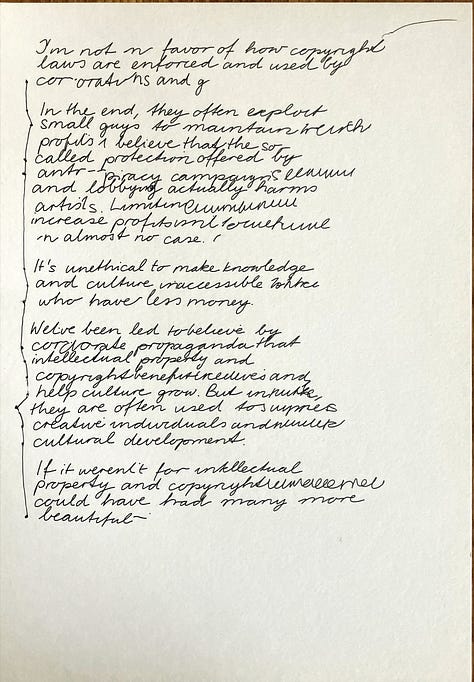 I'm not in favor of how copyright
laws are enforced and used by
and g
In the end, they often exploit
small guys to maintain
profits I believe that the so
called protection offered by
anti-- piracy campaigns
and lobbying actually harms
artists. Limiting
increase profits
in almost no case.
It's unethical to make knowledge
and culture inaccessible
who have less money.
We've been led to believe by
corporate propaganda that
intellectual property and
copyright and
help culture grow. But in
they are often used to
creative individuals and
cultural development.
If it weren't for intellectual
property and copyright
could have had many more
beautiful